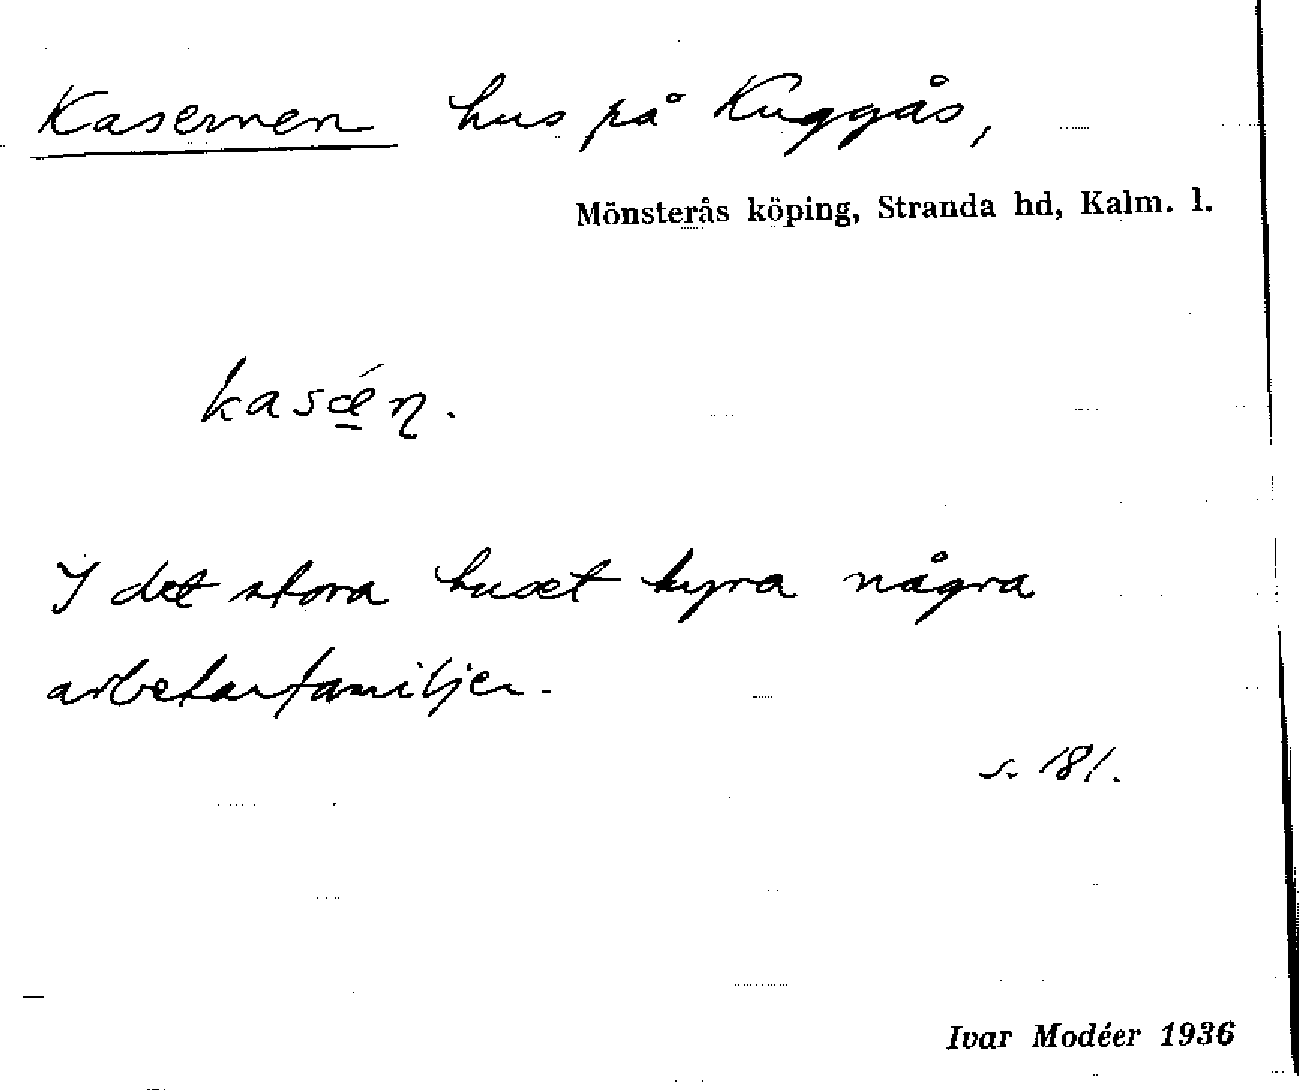 Kasernen hus på Kuggås,
Mönsterås köping, Stranda hd, Kalm. l.
kasǽ̱ɳ.
I det stora huset hyra några
arbetarfamiljer.
s. 181.
Ivar Modéer 1936